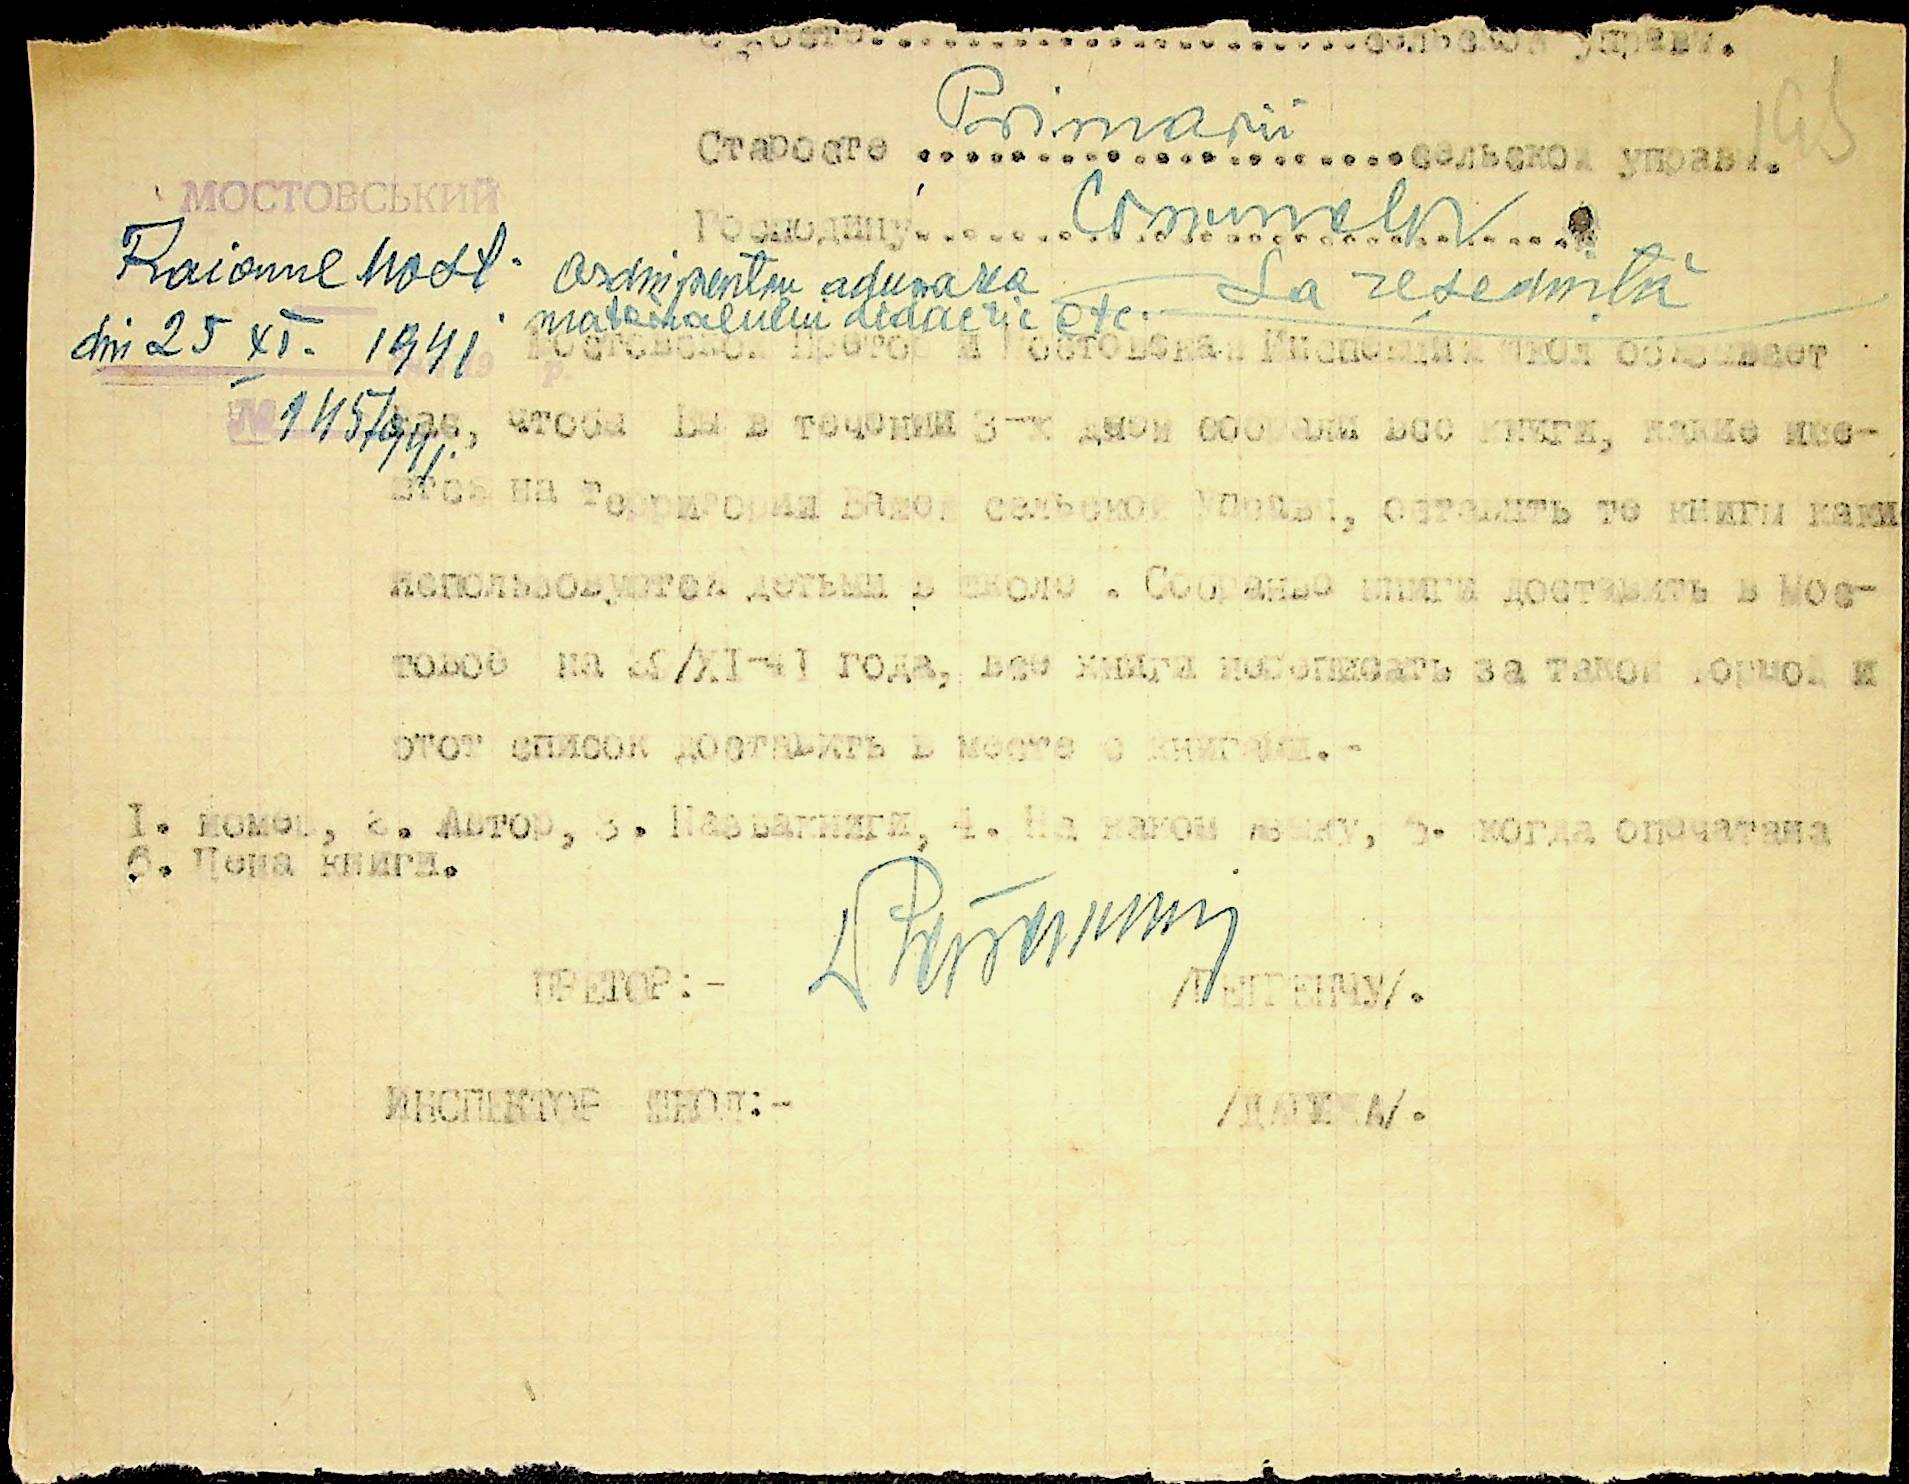 сельской управы.
195
Primarii
Старосте ..............................сельской управы.
МОСТОВСЬКИЙ
Comunelor
Господину..............................
Raionul Most.
Ordin pentru adunarea
La reședință
materialului didactic etc.
din 25 XI. 1941
Мостовской Претор и Мостовская Инспекция Школ обязывает
№ 145/941.
Вас, чтоба Вы в течении 3-х днои собрали все книги, какие име-
ются на Территории Вашей сельской Управы, оставить те книги каки
используются детьми в школе . Собраные книги доставить в Мос-
товое на /XI-4I года, все книги переписать за такой формой и
этот список доставить в месте с книгами.-
I. номер, 2. Автор, 3. Назва книги, 4. На каком языку, 5. когда опечатана
6. Цена книги.
ПРЕТОР:-
ИНСПЕКТОР ШКОЛ:-